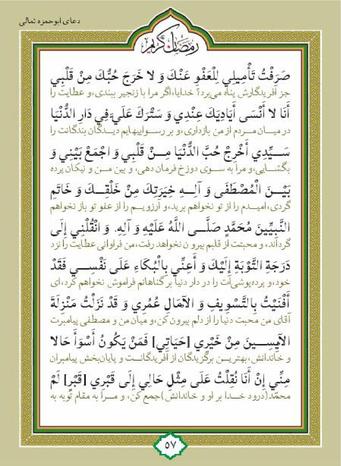 دعای ابوحمزه ثمالی
رمضان کریم
صَرَفْتُ تَأْمِيلِي لِلْعَفْوِ عَنْكَ وَ لا خَرَجَ حُبُّكَ مِنْ قَلْبِي
جز آفریدگارش پناه می‌برد؟ خدایا، اگر مرا با زنجیر ببندی، و عطایت را
أَنَا لا أَنْسَى أَيَادِيَكَ عِنْدِي وَ سَتْرَكَ عَلَيَّ فِي دَارِ الدُّنْيَا
در میان مردم از من بازداری، و بر رسواییهایم دیدگان بندگانت را
سَيِّدِي أَخْرِجْ حُبَّ الدُّنْيَا مِنْ قَلْبِي وَ اجْمَعْ بَيْنِي وَ
بگشایی، و مرا به سوی دوزخ فرمان دهی، و بین من و نیکان پرده
بَيْنَ الْمُصْطَفَى وَ آلِهِ خِيَرَتِكَ مِنْ خَلْقِكَ وَ خَاتَمِ
گردی، امیدم را از تو نخواهم برید، و آرزویم را از عفو تو باز نخواهم
النَّبِيِّينَ مُحَمَّدٍ صَلَّى اللَّهُ عَلَيْهِ وَ آلِهِ. وَ انْقُلْنِي إِلَى
گرداند، و محبتت از قلبم بیرون نخواهد رفت، من فراوانی عطایت را نزد
دَرَجَةِ التَّوْبَةِ إِلَيْكَ وَ أَعِنِّي بِالْبُكَاءِ عَلَى نَفْسِي فَقَدْ
خود، و پرده‌پوشی‌ات را در دار دنیا بر گناهانم فراموش نخواهم کرد، ای
أَفْنَيْتُ بِالتَّسْوِيفِ وَ الآمَالِ عُمُرِي وَ قَدْ نَزَلْتُ مَنْزِلَةَ
آقای من محبت دنیا را از دلم بیرون کن، و میان من و مصطفی پیامبرت
الْآيِسِينَ مِنْ خَيْرِي [حَيَاتِي] فَمَنْ يَكُونُ أَسْوَأَ حَالا
و خاندانش، بهترین برگزیدگان از آفریدگانت و پایان‌بخش پیامبران
مِنِّي إِنْ أَنَا نُقِلْتُ عَلَى مِثْلِ حَالِي إِلَى قَبْرِي [قَبْرٍ] لَمْ
محمّد (درود خدا بر او و خاندانش) جمع کن، و مرا به مقام توبه به
۵۷